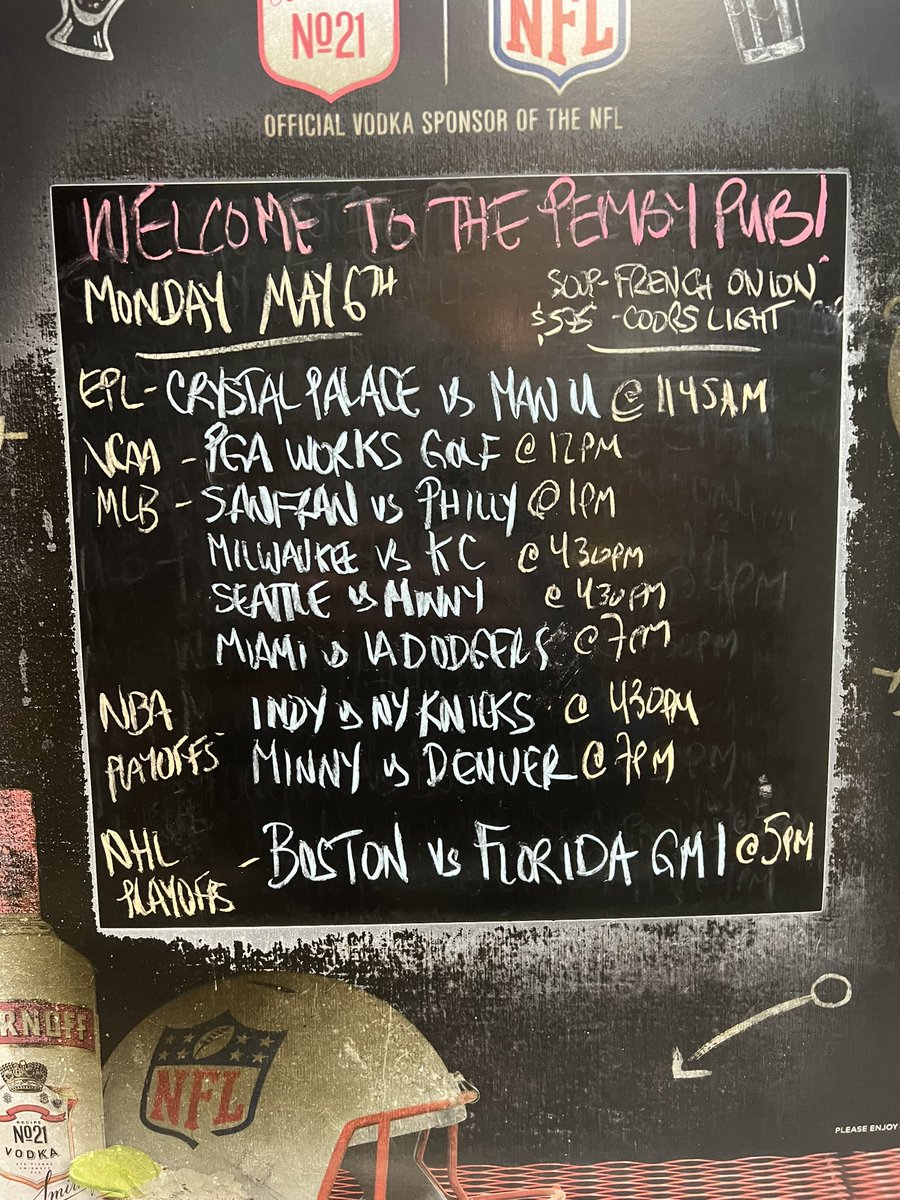 No21
NFL
OFFICIAL VODKA SPONSOR OF THE NFL
WELCOME TO THE PEMBY PUB!
MONDAY MAY 6TH
SOUP-FRENCH ONION
$5.75 - COORS LIGHT
EPL- CRYSTAL PALACE vs MAN U @ 1145AM
NCAA - PGA WORKS GOLF @ 12PM
MLB - SANFRAN vs PHILLY @ 1PM
MILWAUKEE vs KC @ 430PM
SEATTLE vs MINNY @ 430PM
MIAMI vs LA DODGERS @ 7PM
NBA PLAYOFFS INDY vs NY KNICKS @ 430PM
MINNY vs DENVER @ 7PM
NHL PLAYOFFS - BOSTON vs FLORIDA GM 1 @ 5PM
NFL
RNOFF
RECIPE
No21
VODKA
Smir
PLEASE ENJOY